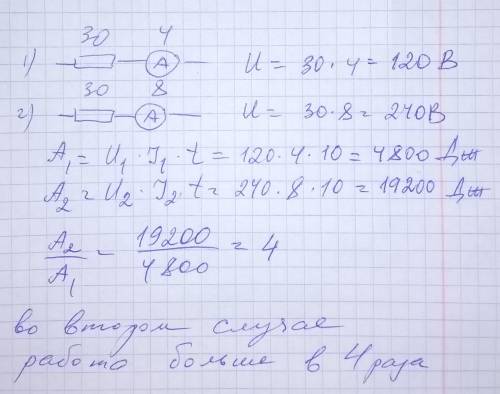 30 4
1) A U = 30 · 4 = 120 В
30 8
2) A U = 30 · 8 = 240 В
A₁ = U₁ · I₁ · t = 120 · 4 · 10 = 4800 Дж
A₂ = U₂ · I₂ · t = 240 · 8 · 10 = 19200 Дж
A₂/A₁ = 19200/4800 = 4
во втором случае
работа больше в 4 раза